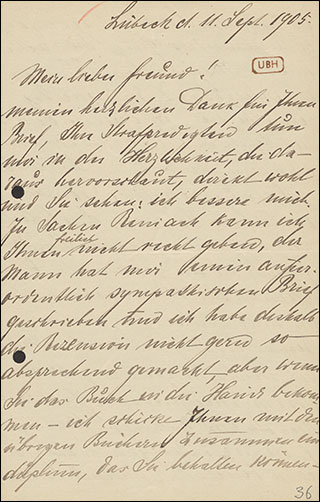 Lübeck d. 11. Sept. 1905.
UBH
Mein lieber Freund!
meinen herzlichen Dank für Ihren
Brief, Ihr Strafpredigtlein tun
mir in der Herzlichkeit, die da-
raus hervorschaut, direkt wohl
und Sie schau: ich bessere mich.
In Sachen kann ich
Ihnen freilich nicht recht geben, der
Mann hat mir einen außer-
ordentlich sympathischen Brief
geschrieben, und ich habe deshalb
die Rezension nicht gerad so
absprechend gemacht aber wenn
Sie das Buch in die Hand bekom
men - ich schicke Ihnen mit den
übrigen Büchern zusammen ein
das Sie behalten können -
36